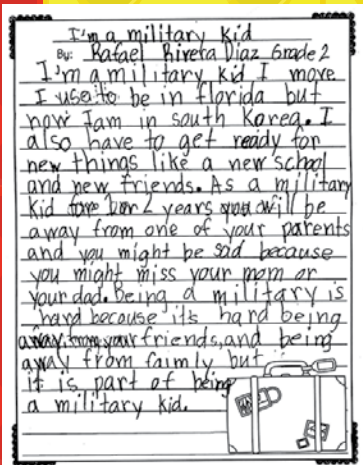 I'm a military kid
By: Rafael Rivera Diaz Grade 2
I'm a military kid I move
I use to be in florida but
now I am in south Korea. I
also have to get ready for
new things like a new school
and new friends. As a military
kid for 1 or 2 years you will be
away from one of your parents
and you might be sad because
you might miss your mom or
your dad. Being a military is
hard because it's hard being
away from your friends, and being
away from faimly but
it is part of being
a military kid.